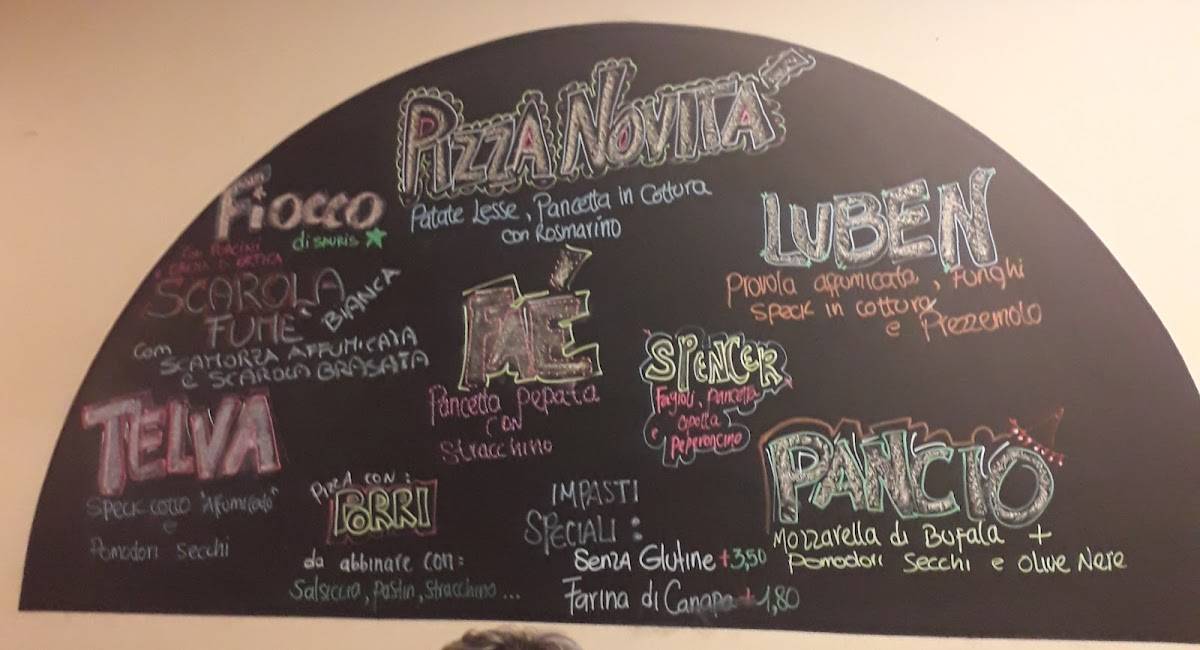 PIZZA NOVITÀ
Patate Lesse, Pancetta in Cottura
con Rosmarino
Fiocco
di SAURIS
con PORCINI
SCAROLA
FUME' BIANCA
con
SCAMORZA AFFUMICATA
e SCAROLA BRASATA
TELVA
Speck cotto "Affumicato"
e
Pomodori Secchi
FAÈ
Pancetta Pepata
CON
Stracchino
LUBEN
Provola affumicata, Funghi
speck in cottura
e Prezzemolo
SPENCER
Fagioli, Pancetta
cipolla
e Peperoncino
PIZZA CON:
PORRI
da abbinare con:
Salsiccia, Pastin, Stracchino ...
IMPASTI
SPECIALI:
Senza Glutine +3,50
Farina di Canapa +1,80
PANCIO
Mozzarella di Bufala +
Pomodori Secchi e olive Nere